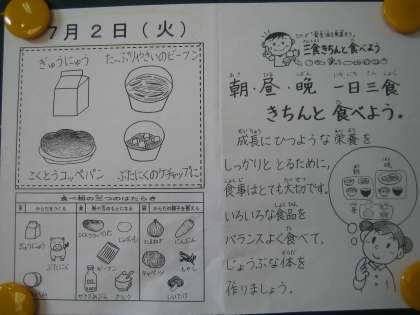 7月2日(火)
ぎゅうにゅう
た〜ぷりやさいのビーフン
こくとうコッペパン
ぶたにくのケチャップに
食べ物の三つのはたらき
赤 からだをつくる
黄 熱や力のもとになる
緑 からだの調子を整える
ぎゅうにゅう
ぶたにく
ビーフン
さとう
たまねぎ
にんじん
キャベツ
もやし
しいたけ
三食きちんと食べよう
朝・昼・晩 一日三食
きちんと 食べよう。
成長にひつような 栄養を
しっかりと とるために、
食事はとても大切です。
いろいろな食品を
バランスよく食べて、
じょうぶな体を
作りましょう。
朝
昼
晩